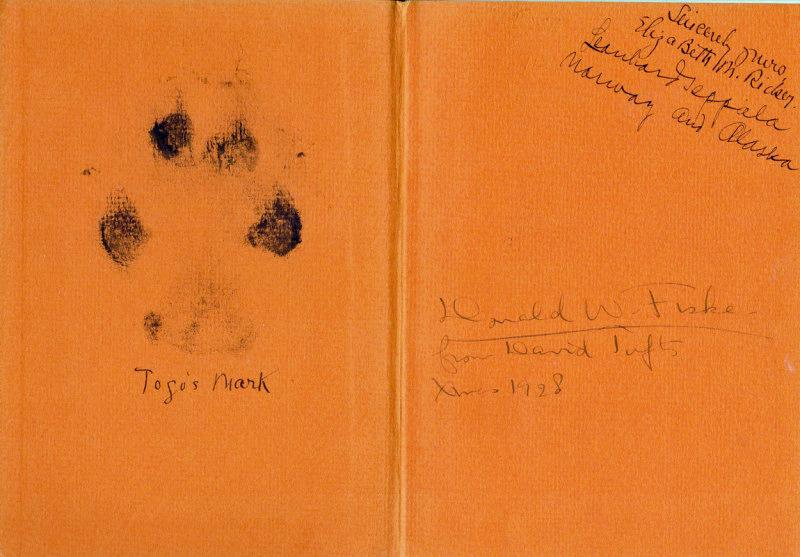 Togo's Mark
Sincerely yours
Elizabeth M. Ricker.
Leonhard Seppala
Norway and Alaska
Donald W. Fiske
from David Tufts
Xmas 1928